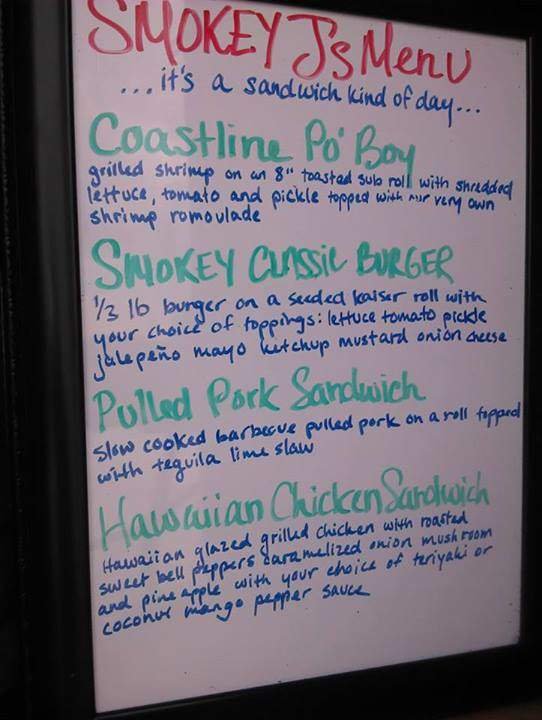 SMOKEY J's Menu
...it's a sandwich kind of day...
Coastline Po' Boy
grilled shrimp on an 8" toasted sub roll with shredded
lettuce, tomato and pickle topped with our very own
shrimp romoulade
SMOKEY CLASSIC BURGER
1/3 lb burger on a seeded kaiser roll with
your choice of toppings: lettuce tomato pickle
jalepeño mayo ketchup mustard onion cheese
Pulled Pork Sandwich
slow cooked barbecue pulled pork on a roll topped
with tequila lime slaw
Hawaiian Chicken Sandwich
Hawaiian glazed grilled chicken with roasted
sweet bell peppers caramelized onion mushroom
and pineapple with your choice of teriyaki or
coconut mango pepper sauce